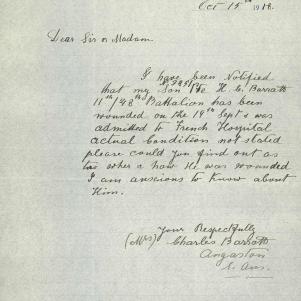 Oct 15th 1918.
Dear Sir or Madam
I have been Notified
that my Son Pte H. C. Barratt
11th/48th Battalion has been
wounded on the 19th Sept &
was
admitted to French Hospital
actual Condition not stated
please could you find out as
to where & how He was wounded
I am anscious to Know about
Him.
Yours Respectfully
(Mrs) Charles Barratt
Angaston
S. Aus.